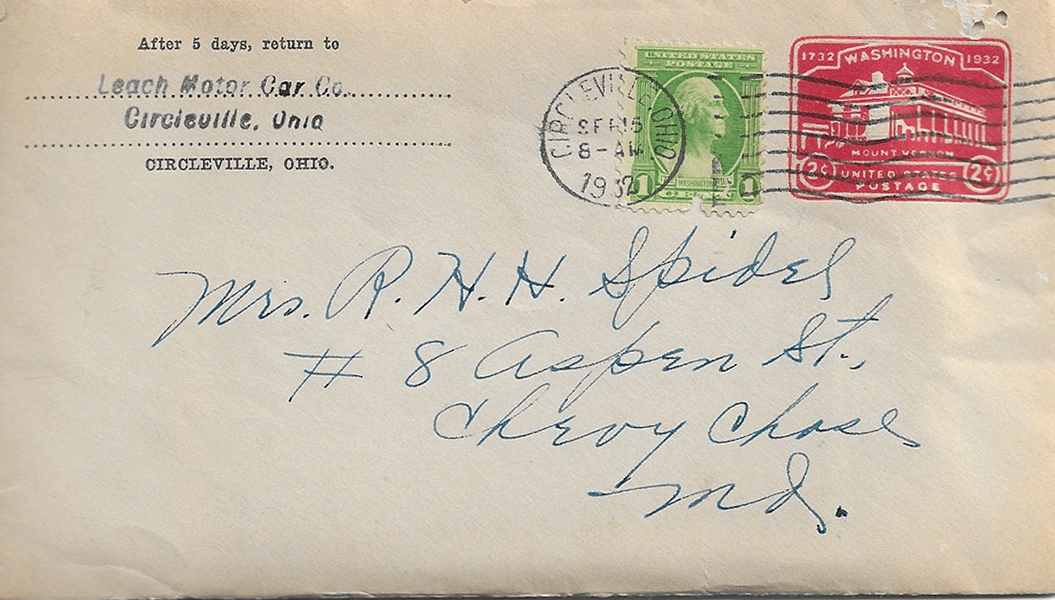 After 5 days, return to
Leach Motor Car Co.
Circleville, Ohio
CIRCLEVILLE, OHIO.
CIRCLEVILLE OHIO
SEP 15
8-AM
1932
UNITED STATES
POSTAGE
1 WASHINGTON 1
1732 WASHINGTON 1932
MOUNT VERNON
2¢ UNITED STATES 2¢
POSTAGE
Mrs. R. H. H. Spidel
# 8 Aspen St.,
Chevy Chase
Md.